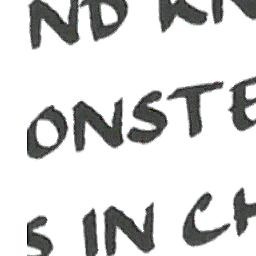 ND KN
ONSTE
S IN CH